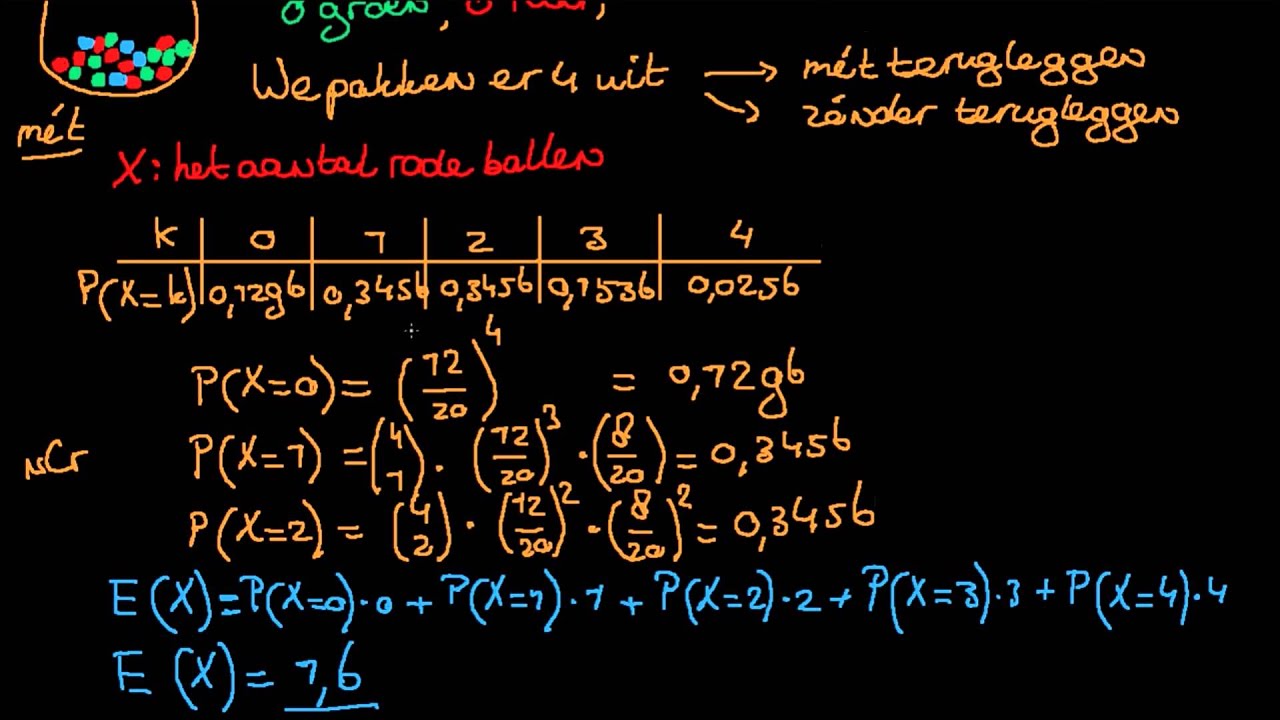 groen,
We pakken er 4 uit → mét terugleggen
→ zónder terugleggen
mét
X: het aantal rode ballen
k | 0 | 1 | 2 | 3 | 4
P(X=k) | 0,1296 | 0,3456 | 0,3456 | 0,1536 | 0,0256
P(X=0) = (12/20)^4 = 0,1296
nCr
P(X=1) = (4 1) · (12/20)^3 · (8/20) = 0,3456
P(X=2) = (4 2) · (12/20)^2 · (8/20)^2 = 0,3456
E(X) = P(X=0)·0 + P(X=1)·1 + P(X=2)·2 + P(X=3)·3 + P(X=4)·4
E(X) = 1,6